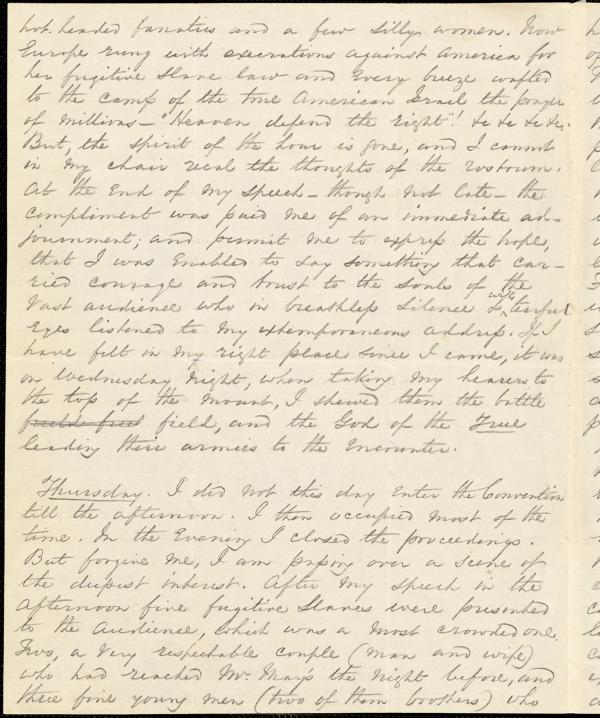 hot-headed fanatics and a few silly women. Now
Europe rung with execrations against America for
her fugitive slave law and every breeze wafted
to the camp of the true American Israel the prayer
of millions — "Heaven defend the right"! &c &c &c &c.
But, the spirit of the hour is gone, and I cannot
in my chair recal the thoughts of the rostrum.
At the end of my speech — though not late — the
compliment was paid me of an immediate ad-
journment; and permit me to express the hope,
that I was enabled to say something that car-
ried courage and trust to the souls of the
vast audience who in breathless silence & with tearful
eyes listened to my extemporaneous address. If I
have felt in my right place since I came, it was
on Wednesday night, when taking my hearers to
the top of the mount, I shewed them the battle
field, and the God of the True
leading their armies to the encounter.
Thursday. I did not this day enter the Convention
till the afternoon. I then occupied most of the
time. In the evening I closed the proceedings.
But forgive me, I am passing over a scene of
the deepest interest. After my speech in the
afternoon five fugitive slaves were presented
to the audience, which was a most crowded one.
Two, a very respectable couple (man and wife)
who had reached Mr. May's the night before, and
three fine young men (two of them brothers) who